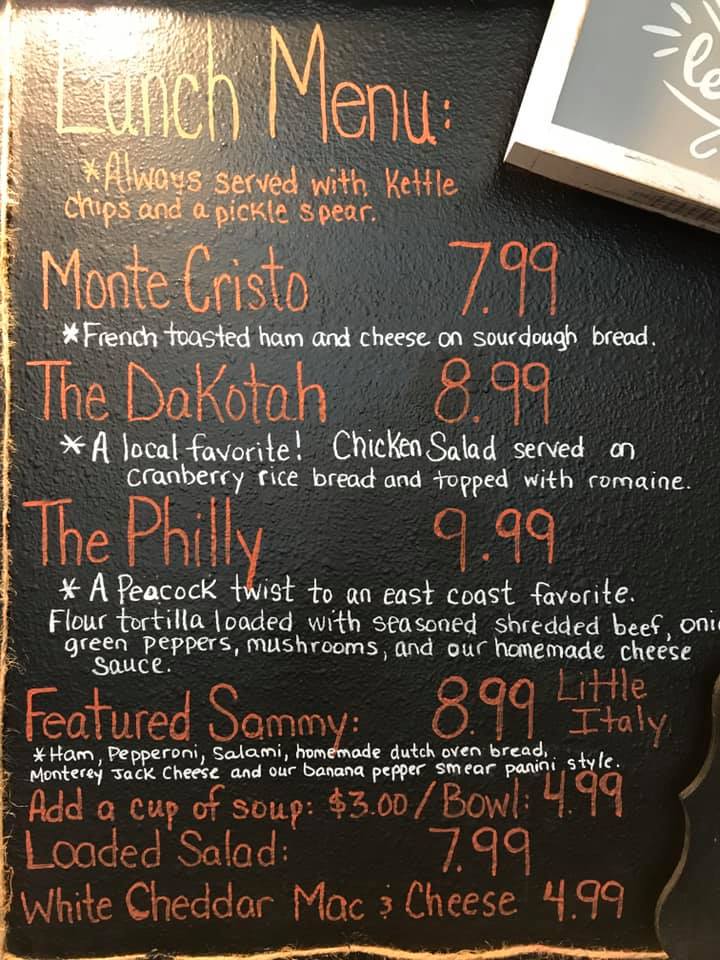 Lunch Menu:
*Always served with Kettle
chips and a pickle spear.
Monte Cristo 7.99
*French toasted ham and cheese on sourdough bread.
The Dakotah 8.99
*A local favorite! Chicken Salad served on
cranberry rice bread and topped with romaine.
The Philly 9.99
*A Peacock twist to an east coast favorite.
Flour tortilla loaded with seasoned shredded beef,
green peppers, mushrooms, and our homemade cheese
sauce.
Featured Sammy: 8.99 Little
Italy
*Ham, Pepperoni, Salami, homemade dutch oven bread,
Monterey Jack Cheese and our banana pepper smear panini style.
Add a cup of soup: $3.00/Bowl: 4.99
Loaded Salad: 7.99
White Cheddar Mac & Cheese 4.99